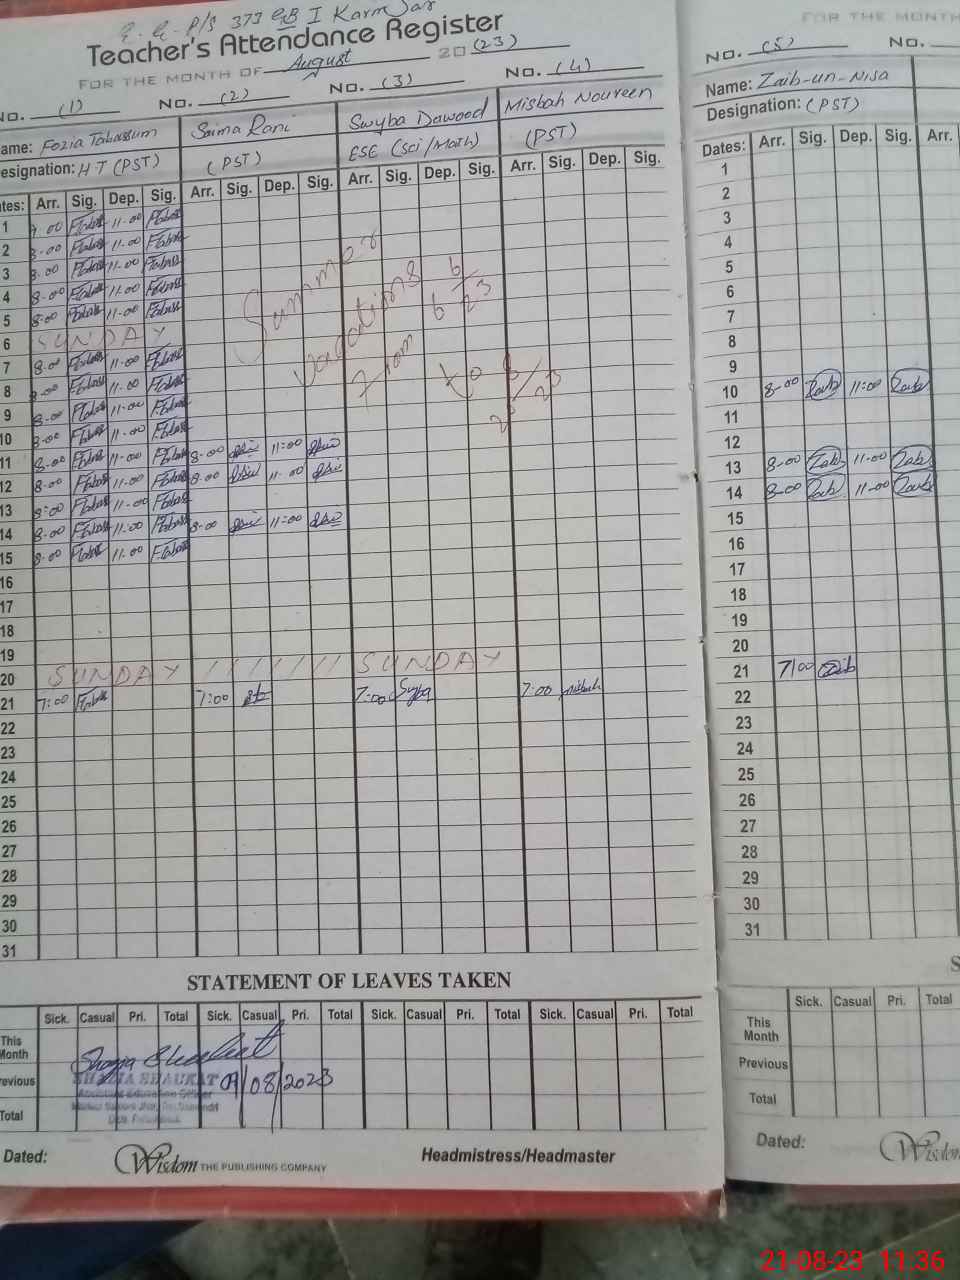 373 GB I Karm Sar
Teacher's Attendance Register
FOR THE MONTH OF August 20 (23)
No. (1) No. (2) No. (3) No. (4)
Name: Fozia Tabassum Saima Rani Swyba Dawood Misbah Noureen
Designation: H T (PST) (PST) ESE (Sci/Math) (PST)
Dates: Arr. Sig. Dep. Sig. Arr. Sig. Dep. Sig. Arr. Sig. Dep. Sig. Arr. Sig. Dep. Sig.
1 00 11-00
2 8-00 11-00
3 8-00 11-00
4 8-00 11.00
5 8-00 11-00
6 SUNDAY
7 8-00 11-00
8 8-00 11-00
9 8-00 11-00
10 8-00 11-00
11 8-00 11-00 8-00 11:00
12 8-00 11-00 8-00 11-00
13 8-00 11-00
14 8-00 11:00 8-00 11:00
15 8-00 11-00
Summer
vacations
from 6/6/23
to 20/8/23
16
17
18
19
20 SUNDAY / / / / / / / SUNDAY
21 7:00 7:00 7:00 Swyba 7:00 misbah
22
23
24
25
26
27
28
29
30
31
STATEMENT OF LEAVES TAKEN
Sick. Casual Pri. Total Sick. Casual Pri. Total Sick. Casual Pri. Total Sick. Casual Pri. Total
This
Month
Previous
Total
Shazia Shaukat
SHAZIA SHAUKAT 09/08/2023
Assistant Education Officer
Dated: Wisdom THE PUBLISHING COMPANY Headmistress/Headmaster
FOR THE MONTH
No. (5) No.
Name: Zaib-un-Nisa
Designation: (PST)
Dates: Arr. Sig. Dep. Sig. Arr.
1
2
3
4
5
6
7
8
9
10 8-00 Zaib 11:00 Zaib
11
12
13 8-00 Zaib 11-00 Zaib
14 8-00 Zaib 11-00 Zaib
15
16
17
18
19
20
21 7/00 Zaib
22
23
24
25
26
27
28
29
30
31
S
Sick. Casual Pri. Total
This
Month
Previous
Total
Dated: Wisdom
21-08-23 11:36